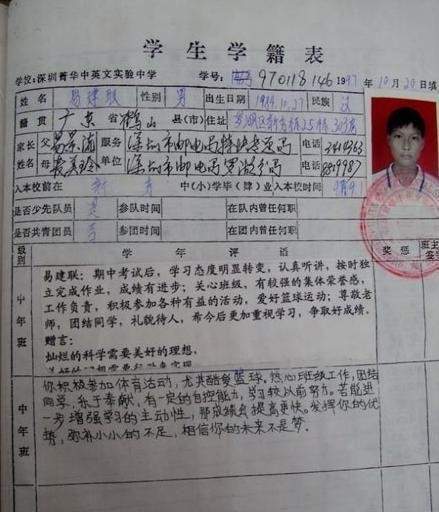 学生学籍表
学校:深圳菁华中英文实验中学 学号: 970118146 1997年10月20日填
姓名 易建联 性别 男 出生日期 1984.10.27 民族 汉
籍贯 广东省鹤山县(市) 住址
家长姓名 父 易景流 服务单位 电话
母 电话
入本校前在 中(小)学毕(肄)业 入本校时间
是否少先队员 参队时间 在队内曾任何职
是否共青团员 否 参团时间 在团内曾任何职
级别 学年评语 奖惩
中年班
易建联:期中考试后,学习态度明显转变,认真听讲,按时独
立完成作业,成绩有进步;关心班级,有较强的集体荣誉感,
工作负责,积极参加各种有益的活动,爱好篮球运动;尊敬老
师,团结同学,礼貌待人,希今后更加重视学习,争取好成绩.
赠言:
灿烂的科学需要美好的理想,
中年班
你积极参加体育活动,尤其酷爱篮球。热心班级工作,团结
同学,乐于奉献,有一定的自控能力,学习较以前努力。若能进
一步增强学习的主动性,那成绩会提高更快。发挥你的优
势,弥补小小的不足,相信你的未来不是梦.